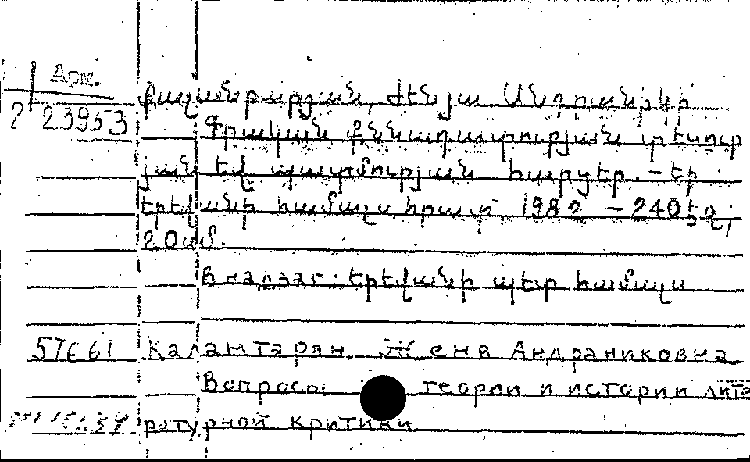 Арм.
2 23953
Քալանթարյան Ժենյա Անդրանիկի
Գրական քննադատության տեսութ
յան եվ պատմության հարցեր. — եր
Երեվանի համալս հրատ 1982 — 240 էջ;
20սմ.
В надзаг: Երեվանի պետ համալս
57661 Калантарян Женя Андраниковна
Вопросы теории и истории лите
ратурной критики